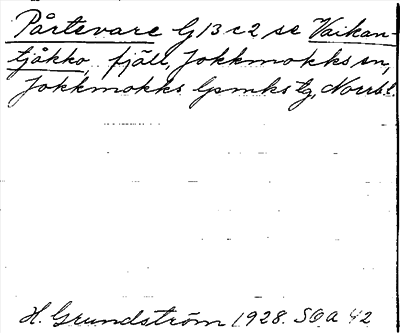 Pårtevare G 13 c 2 se Vaikan-
tjåkko, fjäll, Jokkmokks sn,
Jokkmokks lpmks tg, Norrb. l.
H. Grundström 1928. SOA 42